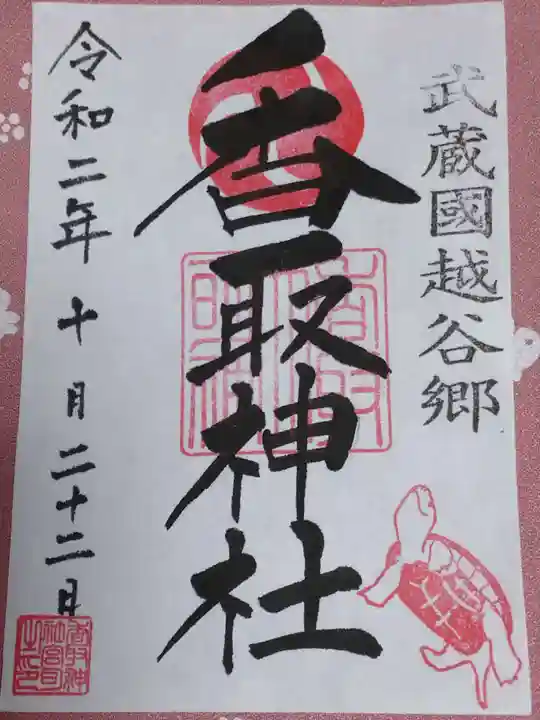 武蔵國越谷郷
香取神社
令和二年十月二十二日